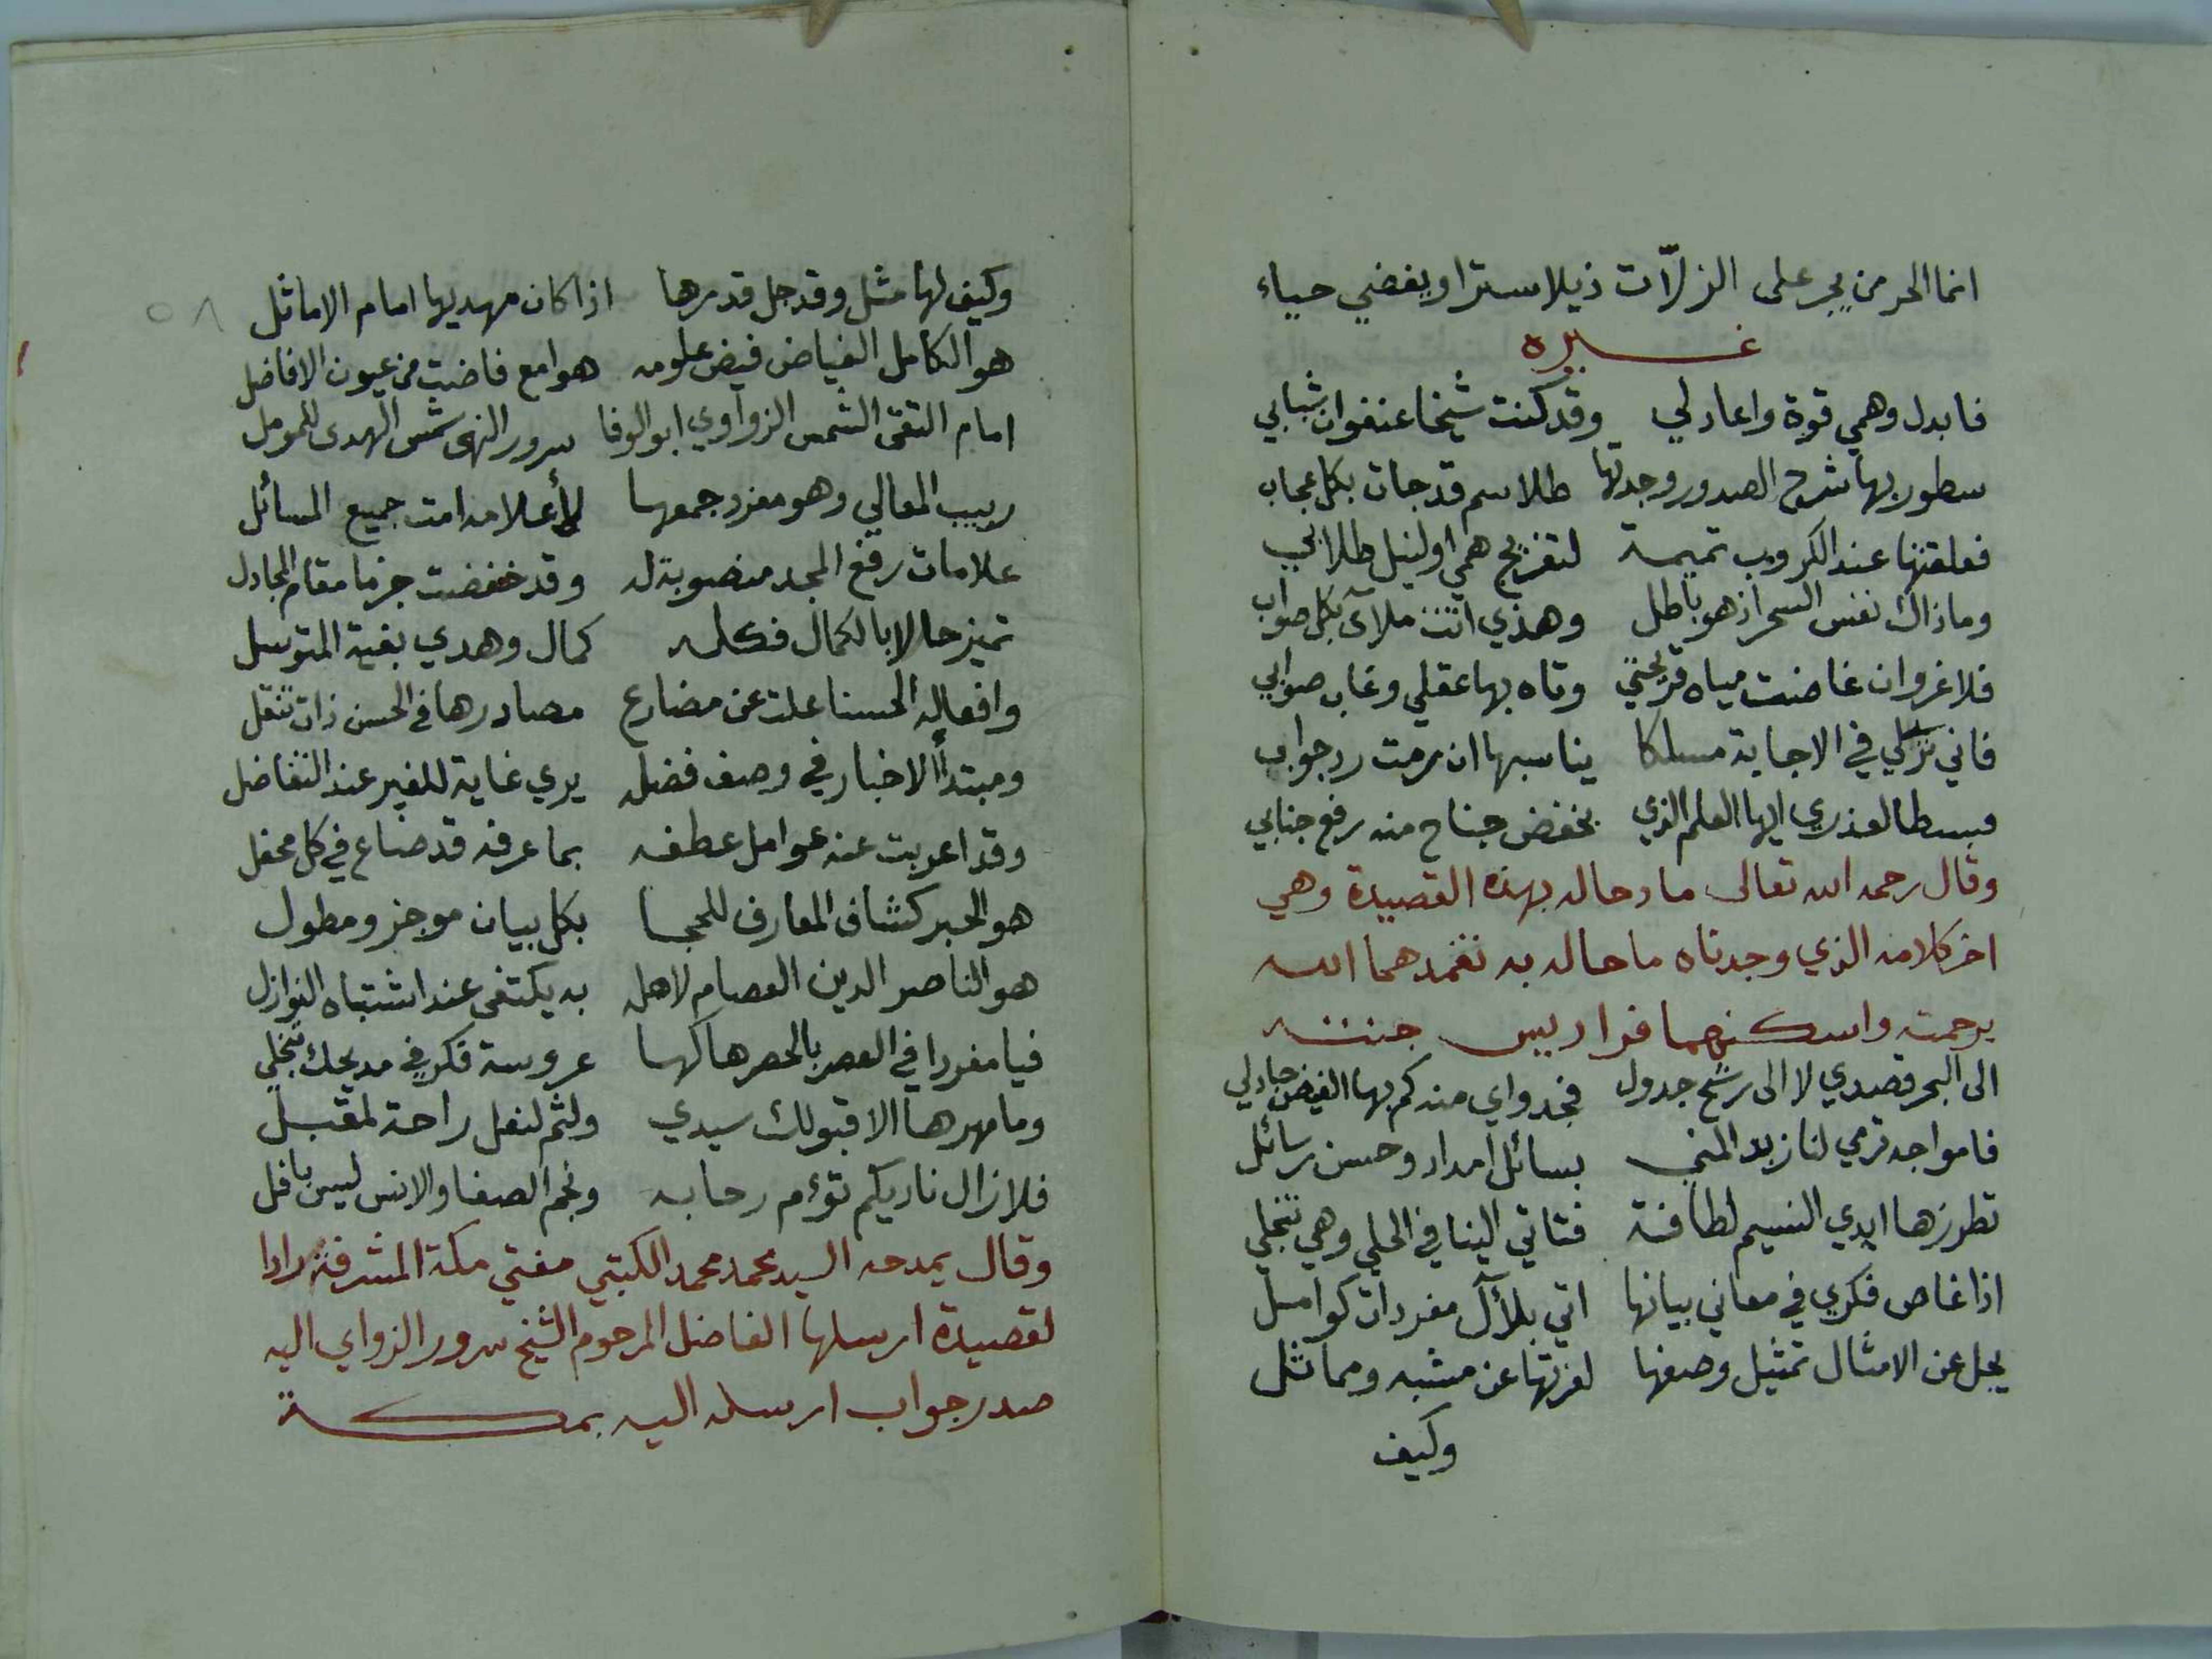 انما الحر من يجر على الزلّات ذيلا سترا ويغضي حياء
غيره
فابدل وهمي قوة واعاد لي وقد كنت شيخا عنفوان شبابي
سطور بها شرح الصدور وجدتها طلاسم قد جات بكل عجاب
فعلقتها عند الكروب تميمة لتفريج همي او لنيل طلابي
وما ذاك نفس السحر اذ هو باطل وهذي اتت ملآى بكل صواب
فلا غرو ان غاضت مياه قريحتي وتاه بها عقلي وغاب صوابي
فاني لي في الاجابة مسلكا يناسبها ان رمت رد جواب
فبسطا لعذري ايها العلم الذي بخفض جناح منه رفع جنابي
وقال رحمه الله تعالى مادحا له بهذه القصيدة وهي
اخر كلامه الذي وجدناه مادحا له به تغمدهما الله
برحمته واسكنهما فراديس جنته
الى البحر قصدي لا الى رشح جدول فجدواي منه كم بها الفيض جاد لي
فامواجه ترمي لنا زبد المنى بسائل امداد وحسن رسائل
تطرزها ايدي النسيم لطافة فتاتي الينا في الحلي وهي تنجلي
اذا غاص فكري في معاني بيانها اتي بلآل مفردات كوامل
يجل عن الامثال تمثيل وصفها لعزتها عن مشبه ومماثل
وكيف
٥٨
وكيف لها مثل وقد جل قدرها اذا كان مهديها امام الاماثل
هو الكامل الفياض فيض علومه هوامع فاضت من عيون الافاضل
امام التقى الشمس الزواوي ابو الوفا سرور النهى شمس الهدى للمومل
ربيب المعالي وهو مفرد جمعها لأعلامه امت جميع المسائل
علامات رفع المجد منصوبة له وقد خفضت جزما مقام المجادل
تميز حالا بالكمال فكله كمال وهدي بغية المتوسل
وافعاله الحسنا علت عن مضارع مصادرها في الحسن ذات تنقل
ومبتدأ الاخبار في وصف فضله يري غاية للغير عند التفاضل
وقد اعربت عنه عوامل عطفه بما عرفه قد ضاع في كل محفل
هو الحبر كشاف المعارف للحجا بكل بيان موجز ومطول
هو الناصر الدين العصام لاهله به يكتفى عند اشتباه النوازل
فيا مفردا في العصر بالحصر هاكها عروسة فكر في مديحك تنجلي
وما مهرها الا قبولك سيدي ولثم لنعل راحة لمقبل
فلا زال ناديكم تؤم رحابه ونجم الصفا والانس ليس بافل
وقال يمدحه السيد محمد محمد الكتبي مفتي مكة المشرفة رادا
لقصيدة ارسلها الفاضل المرحوم الشيخ سرور الزواي اليه
صدر جواب ارسله اليه بمكة